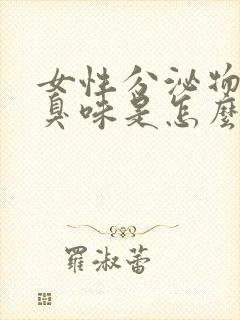 女性分泌物
臭味是怎麼
羅淑蕾